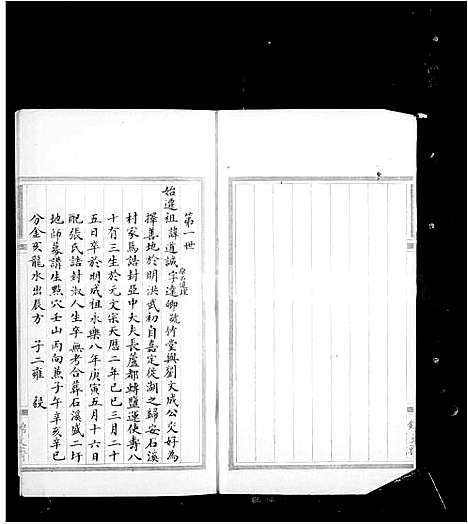 第一世
始遷祖諱道誠字達卿號竹堂與劉文成公交好為
擇善地於明洪武初自嘉定徙湖之歸安石溪
村家焉誥封亞中大夫長蘆都轉鹽運使壽八
十有三生於元文宗天曆二年己巳三月二十
五日卒於明成祖永樂八年庚寅五月十六日
配張氏誥封淑人生卒無考合葬石溪盛二圩
地師墓譜生點穴壬山丙向兼子午辛亥辛巳
分金亥龍水出辰方 子二雍